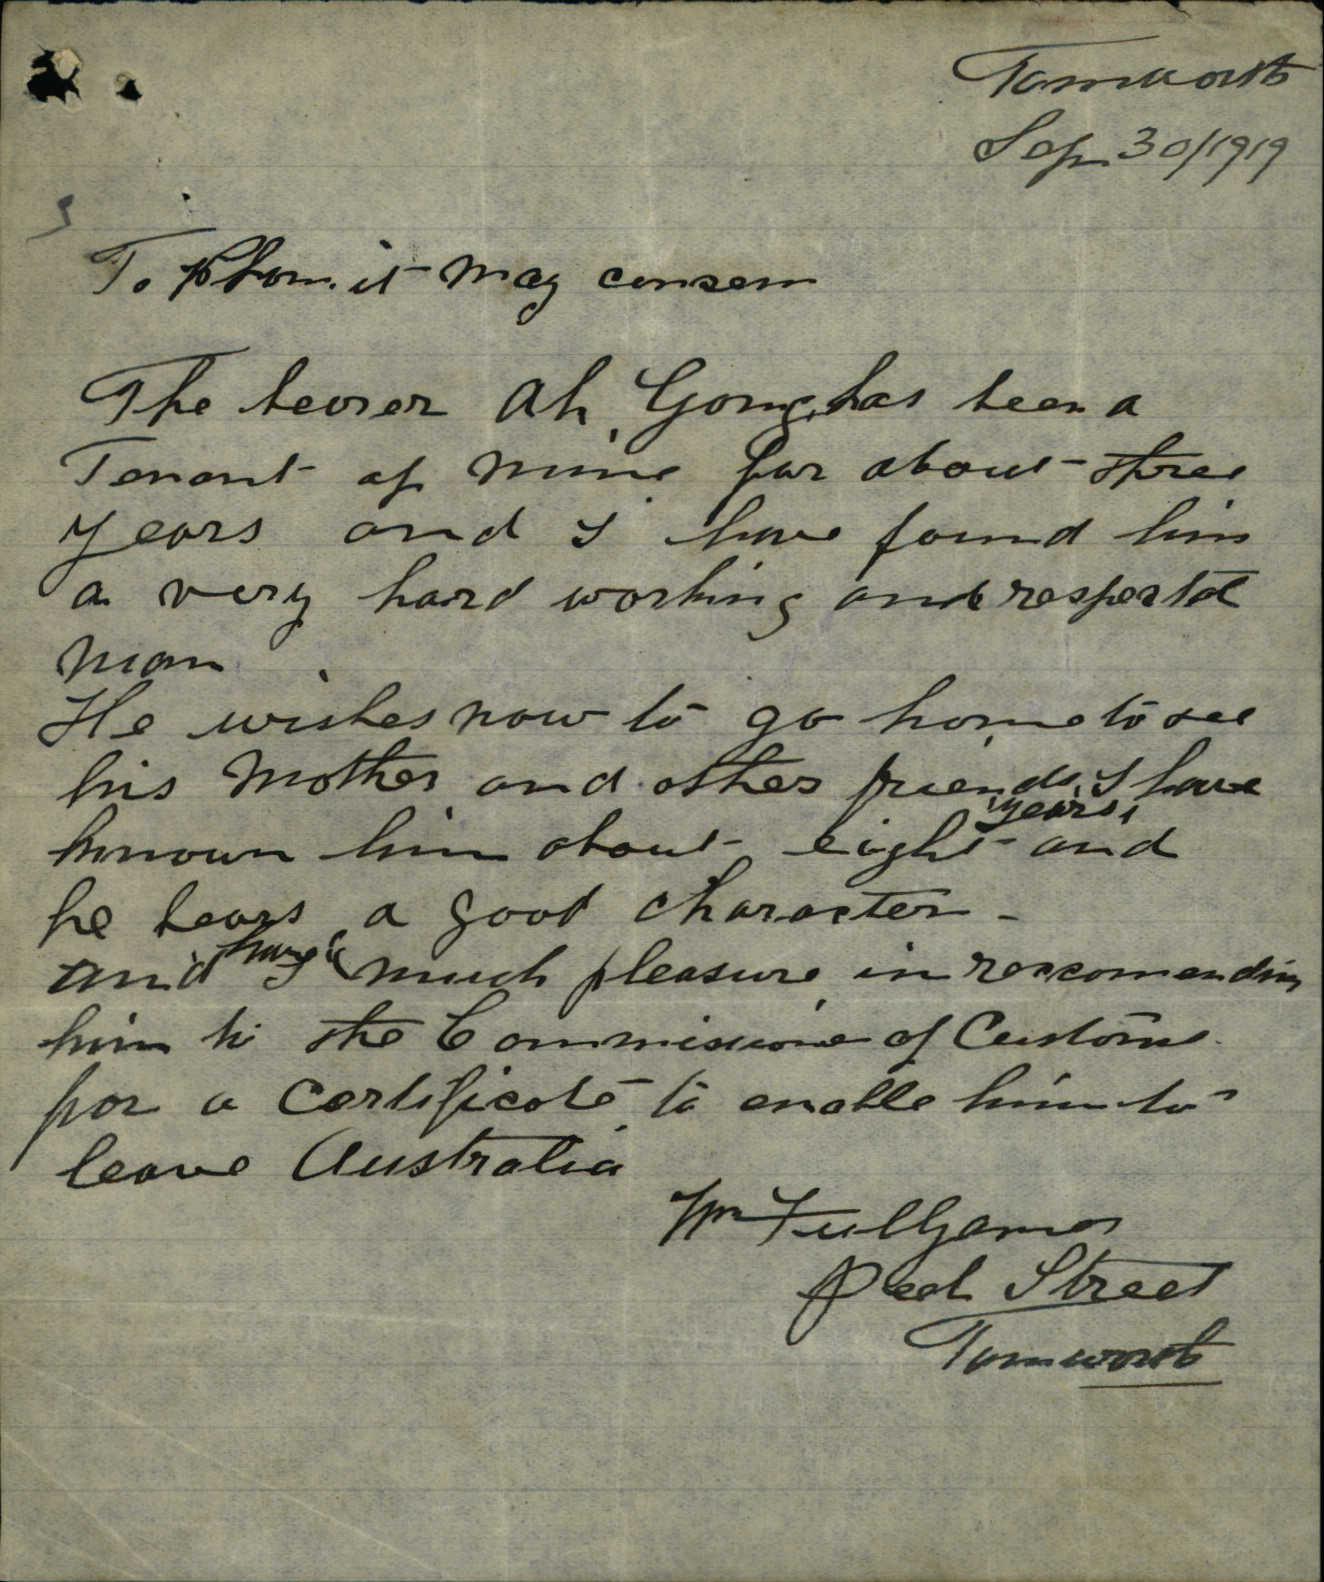 Tamworth
Sep 30/1919
To Whom it May consern
The bearer Ah Gong has been a
Tenant of mine for about three
years and I have found him
a very hard working and respected
man
He wishes now to go home to see
his Mother and other friends, I have
known him about eight years and
he bears a good character -
and I have much pleasure in reccomending
him to the Commissione of Customs
for a Certificate to enable him to
leave Australia
Wm Fullgames
Peel Street
Tamworth